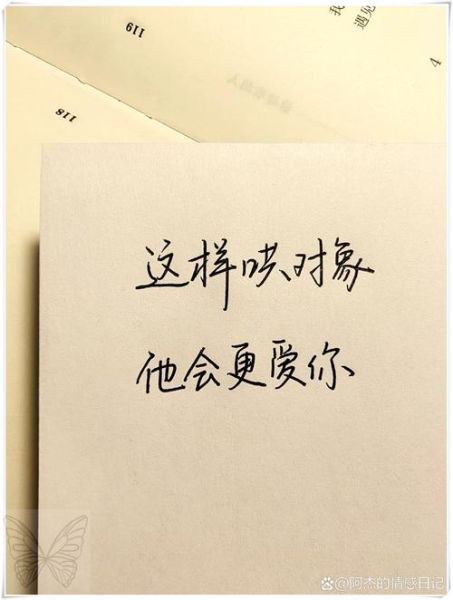 119
我
遇见
4
118
这样哄对象
他会更爱你
@阿杰的情感日记